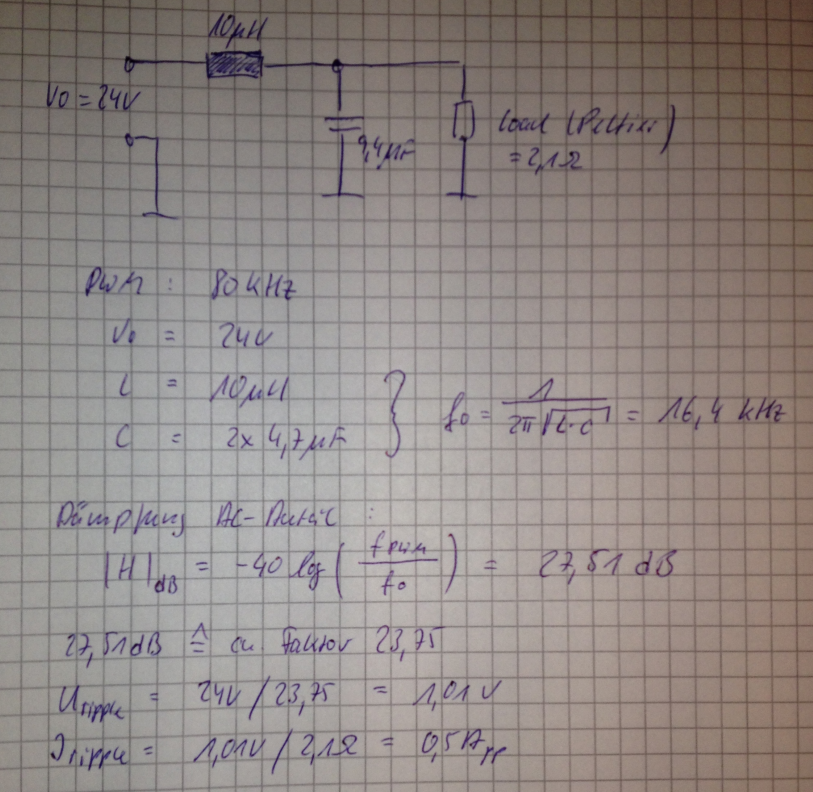 10µH
V0 = 24V
9,4µF
Load (Peltier)
= 2,1Ω
PWM : 80 kHz
V0 = 24V
L = 10µH
C = 2x 4,7µF
f0 = 1 / 2π√L·C = 16,4 kHz
Dämpfung AC-Anteil :
|H|dB = -40 log( fPWM / f0 ) = 27,51 dB
27,51dB ≙ ca. Faktor 23,75
Urippel = 24V / 23,75 = 1,01V
Irippel = 1,01V / 2,1Ω = 0,5App